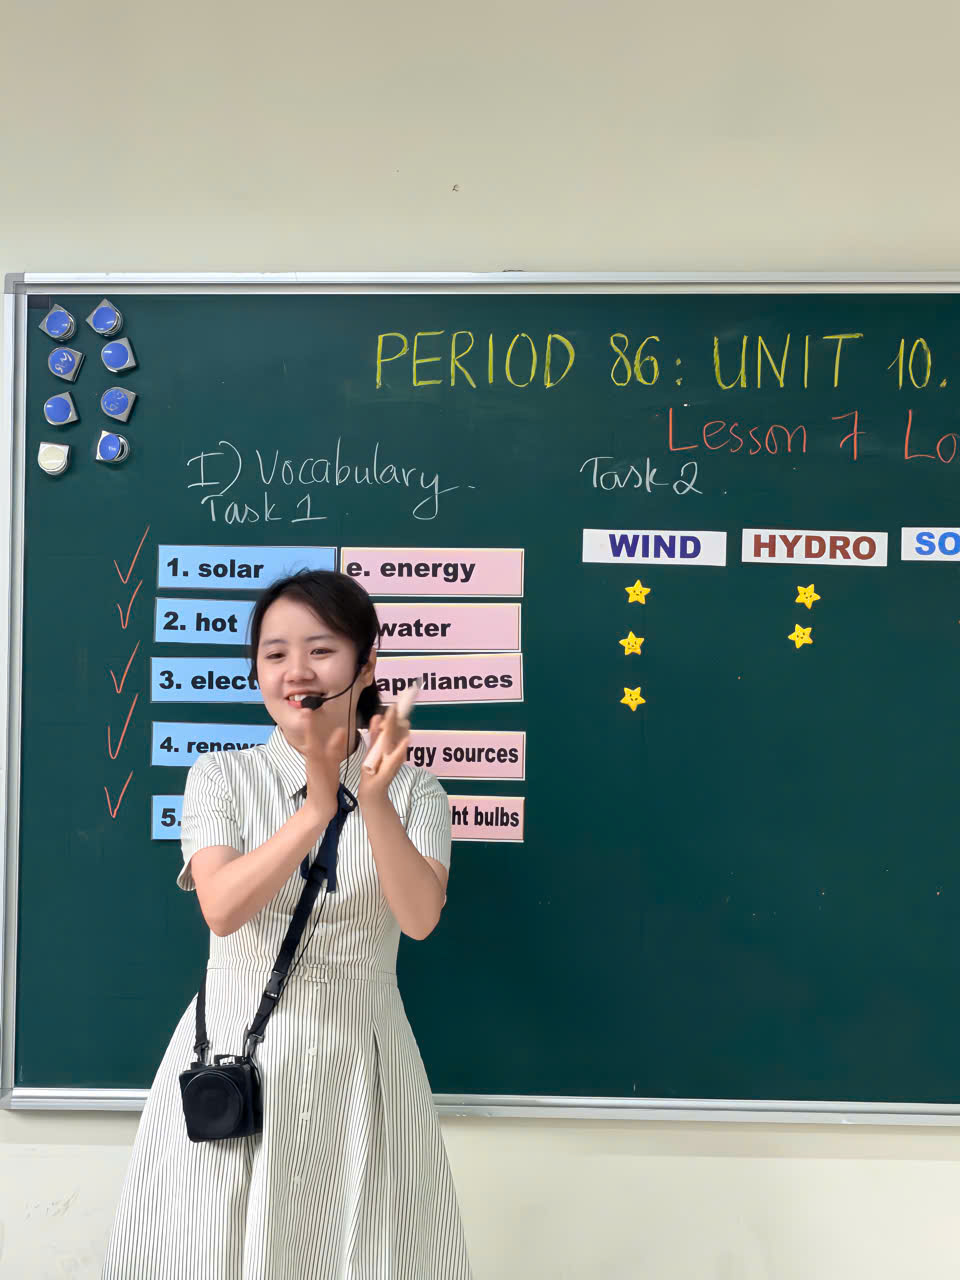 PERIOD 86: UNIT 10.
Lesson 7 Lo
I) Vocabulary.
Task 1
Task 2
1. solar
e. energy
2. hot
water
3. elect
appliances
4. renew
rgy sources
5.
ht bulbs
WIND
HYDRO
SO